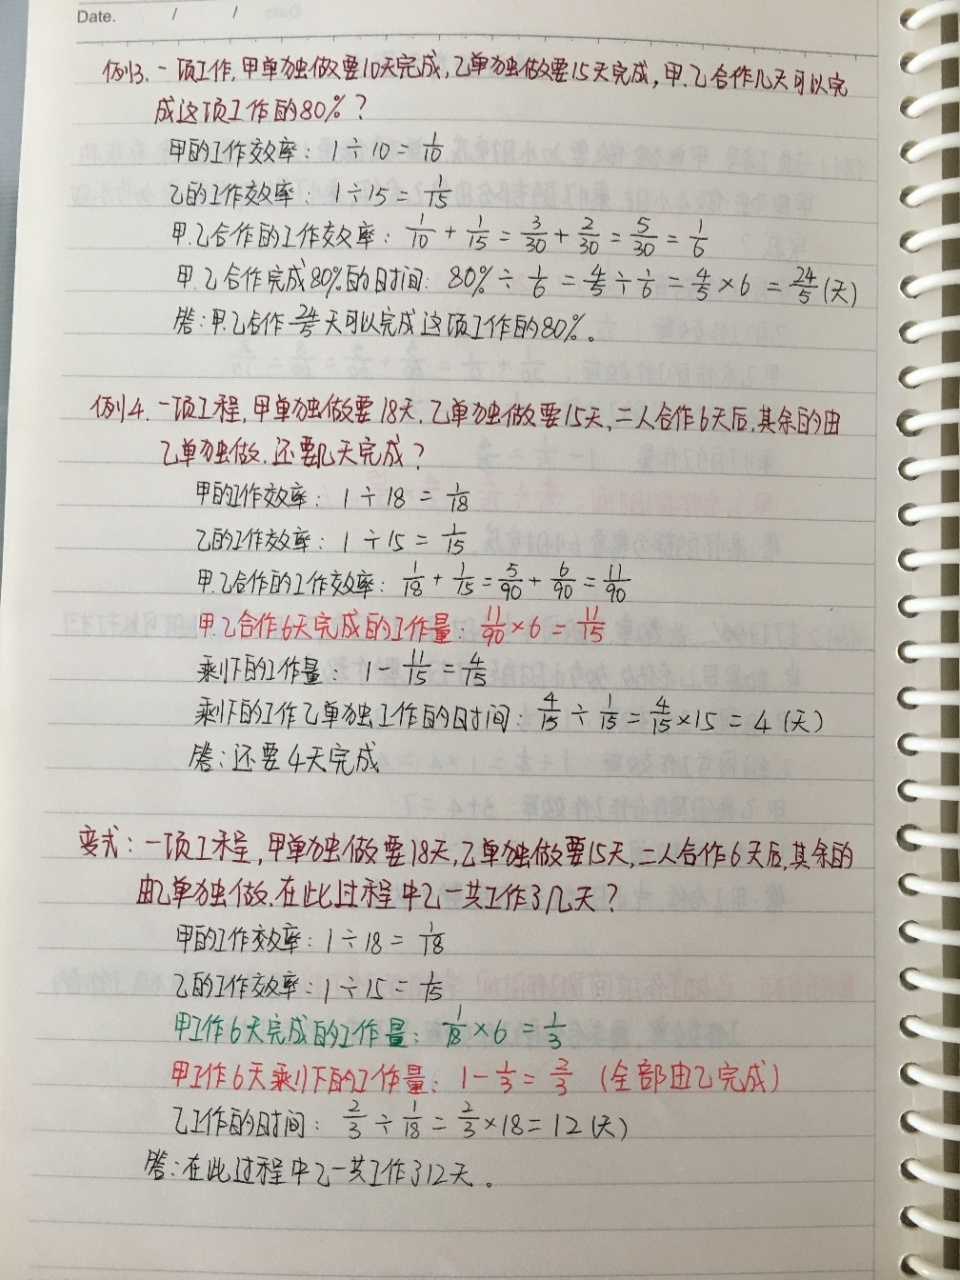 Date. / /
例3. 一项工作,甲单独做要10天完成,乙单独做要15天完成,甲.乙合作几天可以完
成这项工作的80%?
甲的工作效率: 1÷10=1/10
乙的工作效率: 1÷15=1/15
甲.乙合作的工作效率: 1/10+1/15=3/30+2/30=5/30=1/6
甲.乙合作完成80%的时间: 80%÷1/6=4/5÷1/6=4/5×6=24/5(天)
答:甲.乙合作24/5天可以完成这项工作的80%。
例4. 一项工程,甲单独做要18天,乙单独做要15天,二人合作6天后,其余的由
乙单独做.还要几天完成?
甲的工作效率: 1÷18=1/18
乙的工作效率: 1÷15=1/15
甲.乙合作的工作效率: 1/18+1/15=5/90+6/90=11/90
甲.乙合作6天完成的工作量: 11/90×6=11/15
剩下的工作量: 1-11/15=4/15
剩下的工作乙单独工作的时间: 4/15÷1/15=4/15×15=4(天)
答:还要4天完成
变式:一项工程,甲单独做要18天,乙单独做要15天,二人合作6天后,其余的
由乙单独做.在此过程中乙一共工作了几天?
甲的工作效率: 1÷18=1/18
乙的工作效率: 1÷15=1/15
甲工作6天完成的工作量: 1/18×6=1/3
甲工作6天剩下的工作量: 1-1/3=2/3 (全部由乙完成)
乙工作的时间: 2/3÷1/18=2/3×18=12(天)
答:在此过程中乙一共工作了12天。